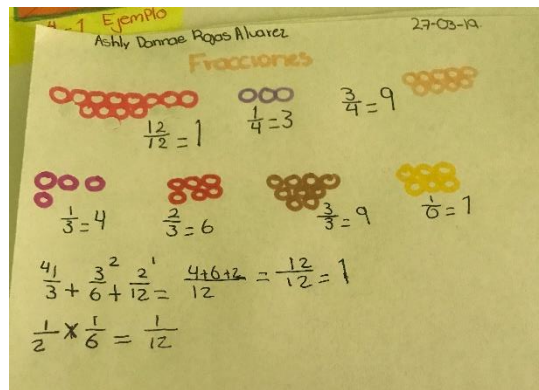 4-1 Ejemplo
Ashly Dannae Rojas Alvarez 27-03-19
Fracciones
12/12 = 1 1/4 = 3 3/4 = 9
1/3 = 4 2/3 = 6 3/3 = 9 1/6 = 7
41/3 + 3²/6 + 2¹/12 = 4+6+2/12 = 12/12 = 1
1/2 * 1/6 = 1/12